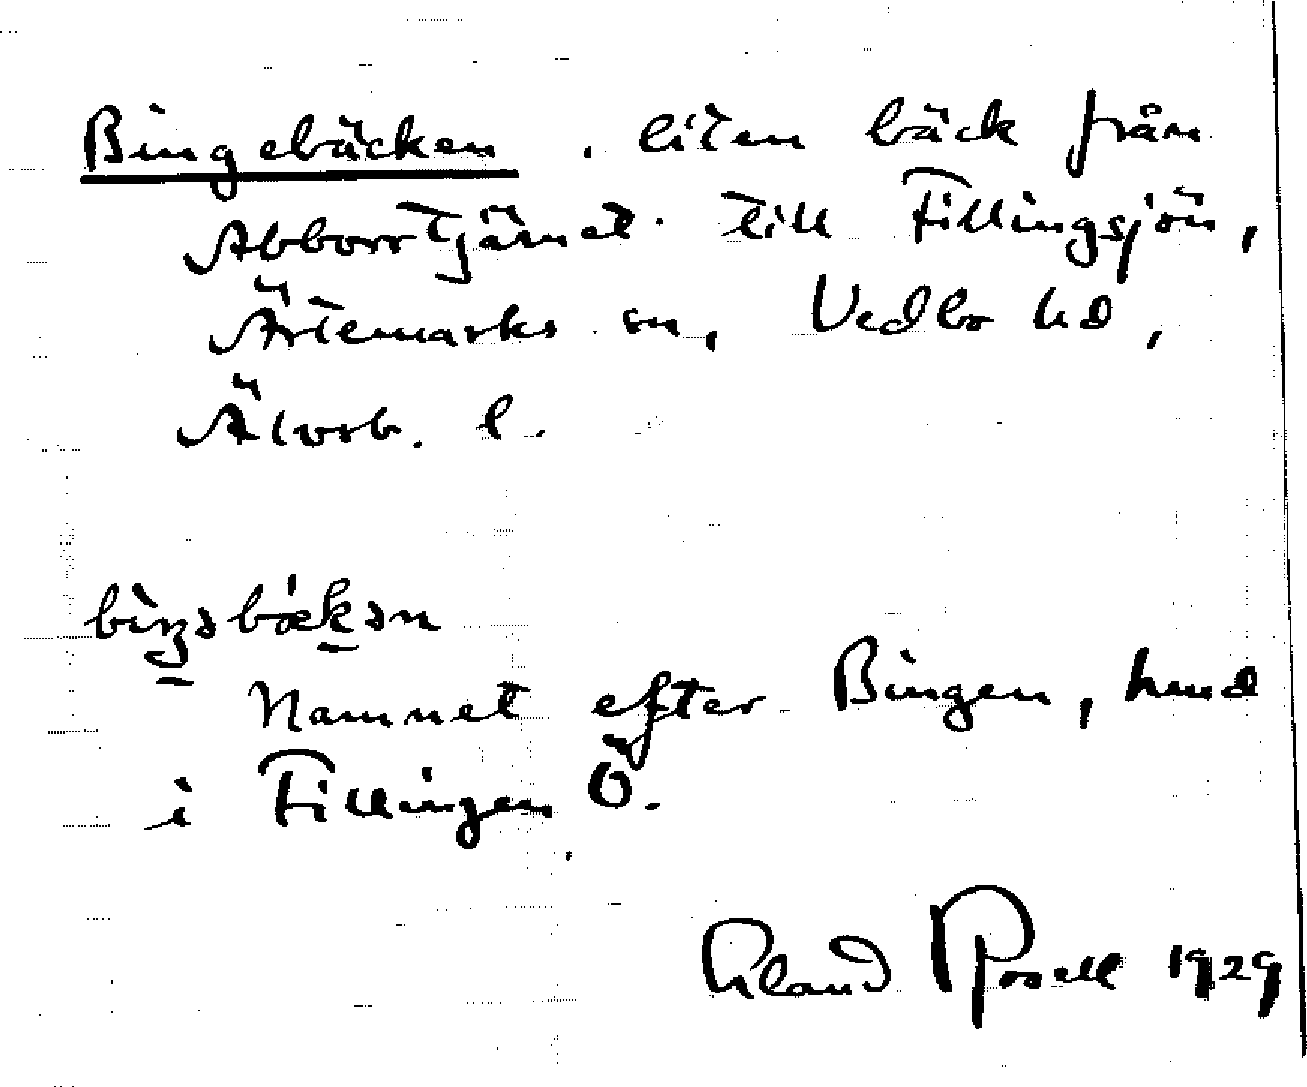 Bingebäcken, liten bäck från
Abborrtjärnet till Fillingsjön,
Ärtemarks sn, Vedbo hd,
Älvsb. l.
Namnet efter Bingen, hmd
i Fillingen Ö.
Erland Rosell 1929